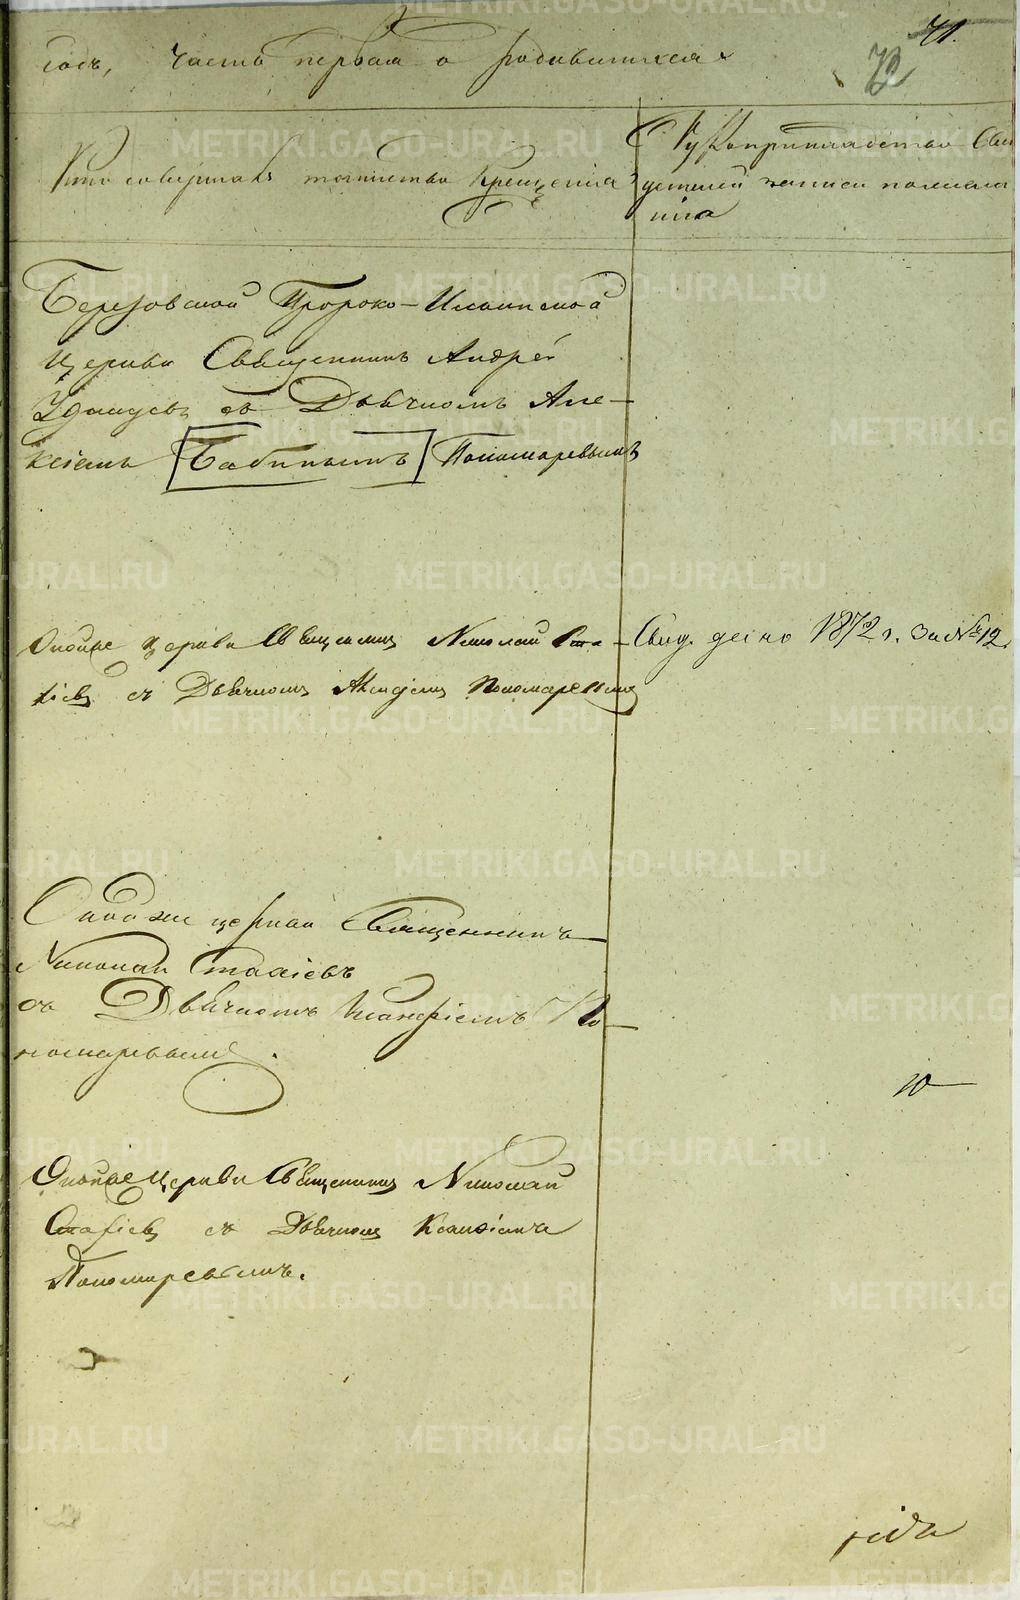 годъ, часть первая о родившихся
71.
72
Кто совершалъ таинство Крещенія
Рукоприкладство Сви
детелей записи по желанію
Березовской Пророко-Ильинской
Церкви Священникъ Андрей
Удинцевъ съ Дьячкомъ Але-
ксіемъ [Бабинымъ] Пономаревымъ
Оной же церкви Священникъ Николай
съ Дьячкомъ Алексіемъ Пономаревымъ
Свид. дано 1872 г. за № 12.
Оной же церкви Священникъ
Николай
съ Дьячкомъ По-
номаревымъ.
10
Оной же Церкви Священникъ Николай
съ Дьячкомъ
Пономаревымъ.
METRIKI.GASO-URAL.RU